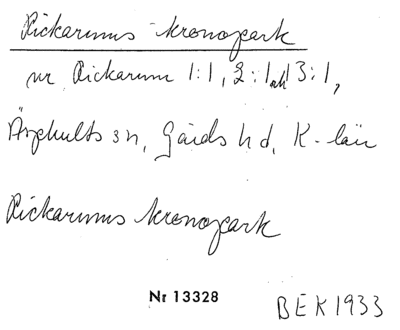 Rickarums kronopark
ur Rickarum 1:1, 2:1 och 3:1,
Äsphults sn, Gärds hd, K-län
Rickarums kronopark
Nr 13328
BEK 1933